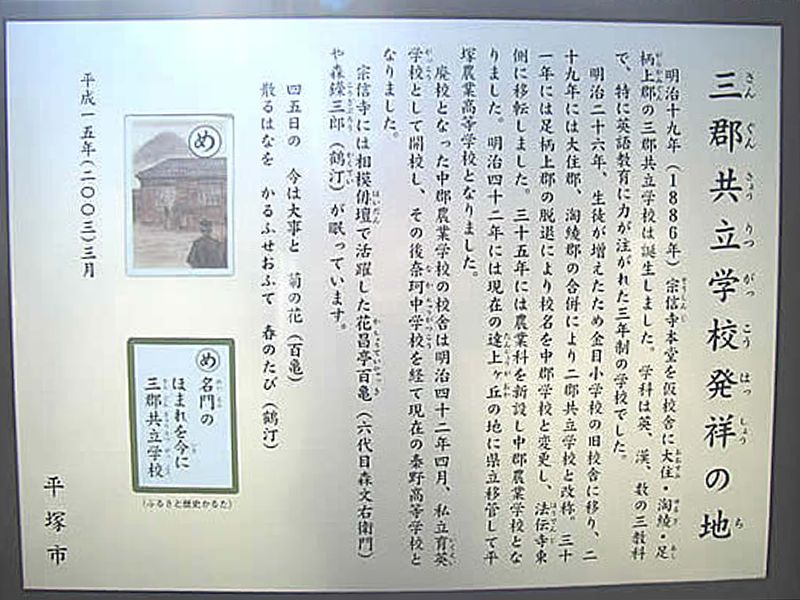 三郡共立学校発祥の地
さん ぐん きょう りつ がっ こう はっ しょう ち
明治十九年(1886年)宗信寺本堂を仮校舎に大住・淘綾・足
柄上郡の三郡共立学校は誕生しました。学科は英、漢、数の三教科
で、特に英語教育に力が注がれた三年制の学校でした。
明治二十六年、生徒が増えたため金目小学校の旧校舎に移り、二
十九年には大住郡、淘綾郡の合併により二郡共立学校と改称。三十
一年には足柄上郡の脱退により校名を中郡学校と変更し、法伝寺東
側に移転しました。三十五年には農業科を新設し中郡農業学校とな
りました。明治四十二年には現在の達上ヶ丘の地に県立移管して平
塚農業高等学校となりました。
廃校となった中郡農業学校の校舎は明治四十二年四月、私立育英
学校として開校し、その後奈珂中学校を経て現在の秦野高等学校と
なりました。
宗信寺には相模俳壇で活躍した花昌亭百亀(六代目森文右衛門)
や森鑅三郎(鶴汀)が眠っています。
四五日の 今は大事と 菊の花(百亀)
散るはなを かるふせおふて 春のたび(鶴汀)
平成一五年(二〇〇三)三月
め
め
名門の
ほまれを今に
三郡共立学校
(ふるさと歴史かるた)
平塚市